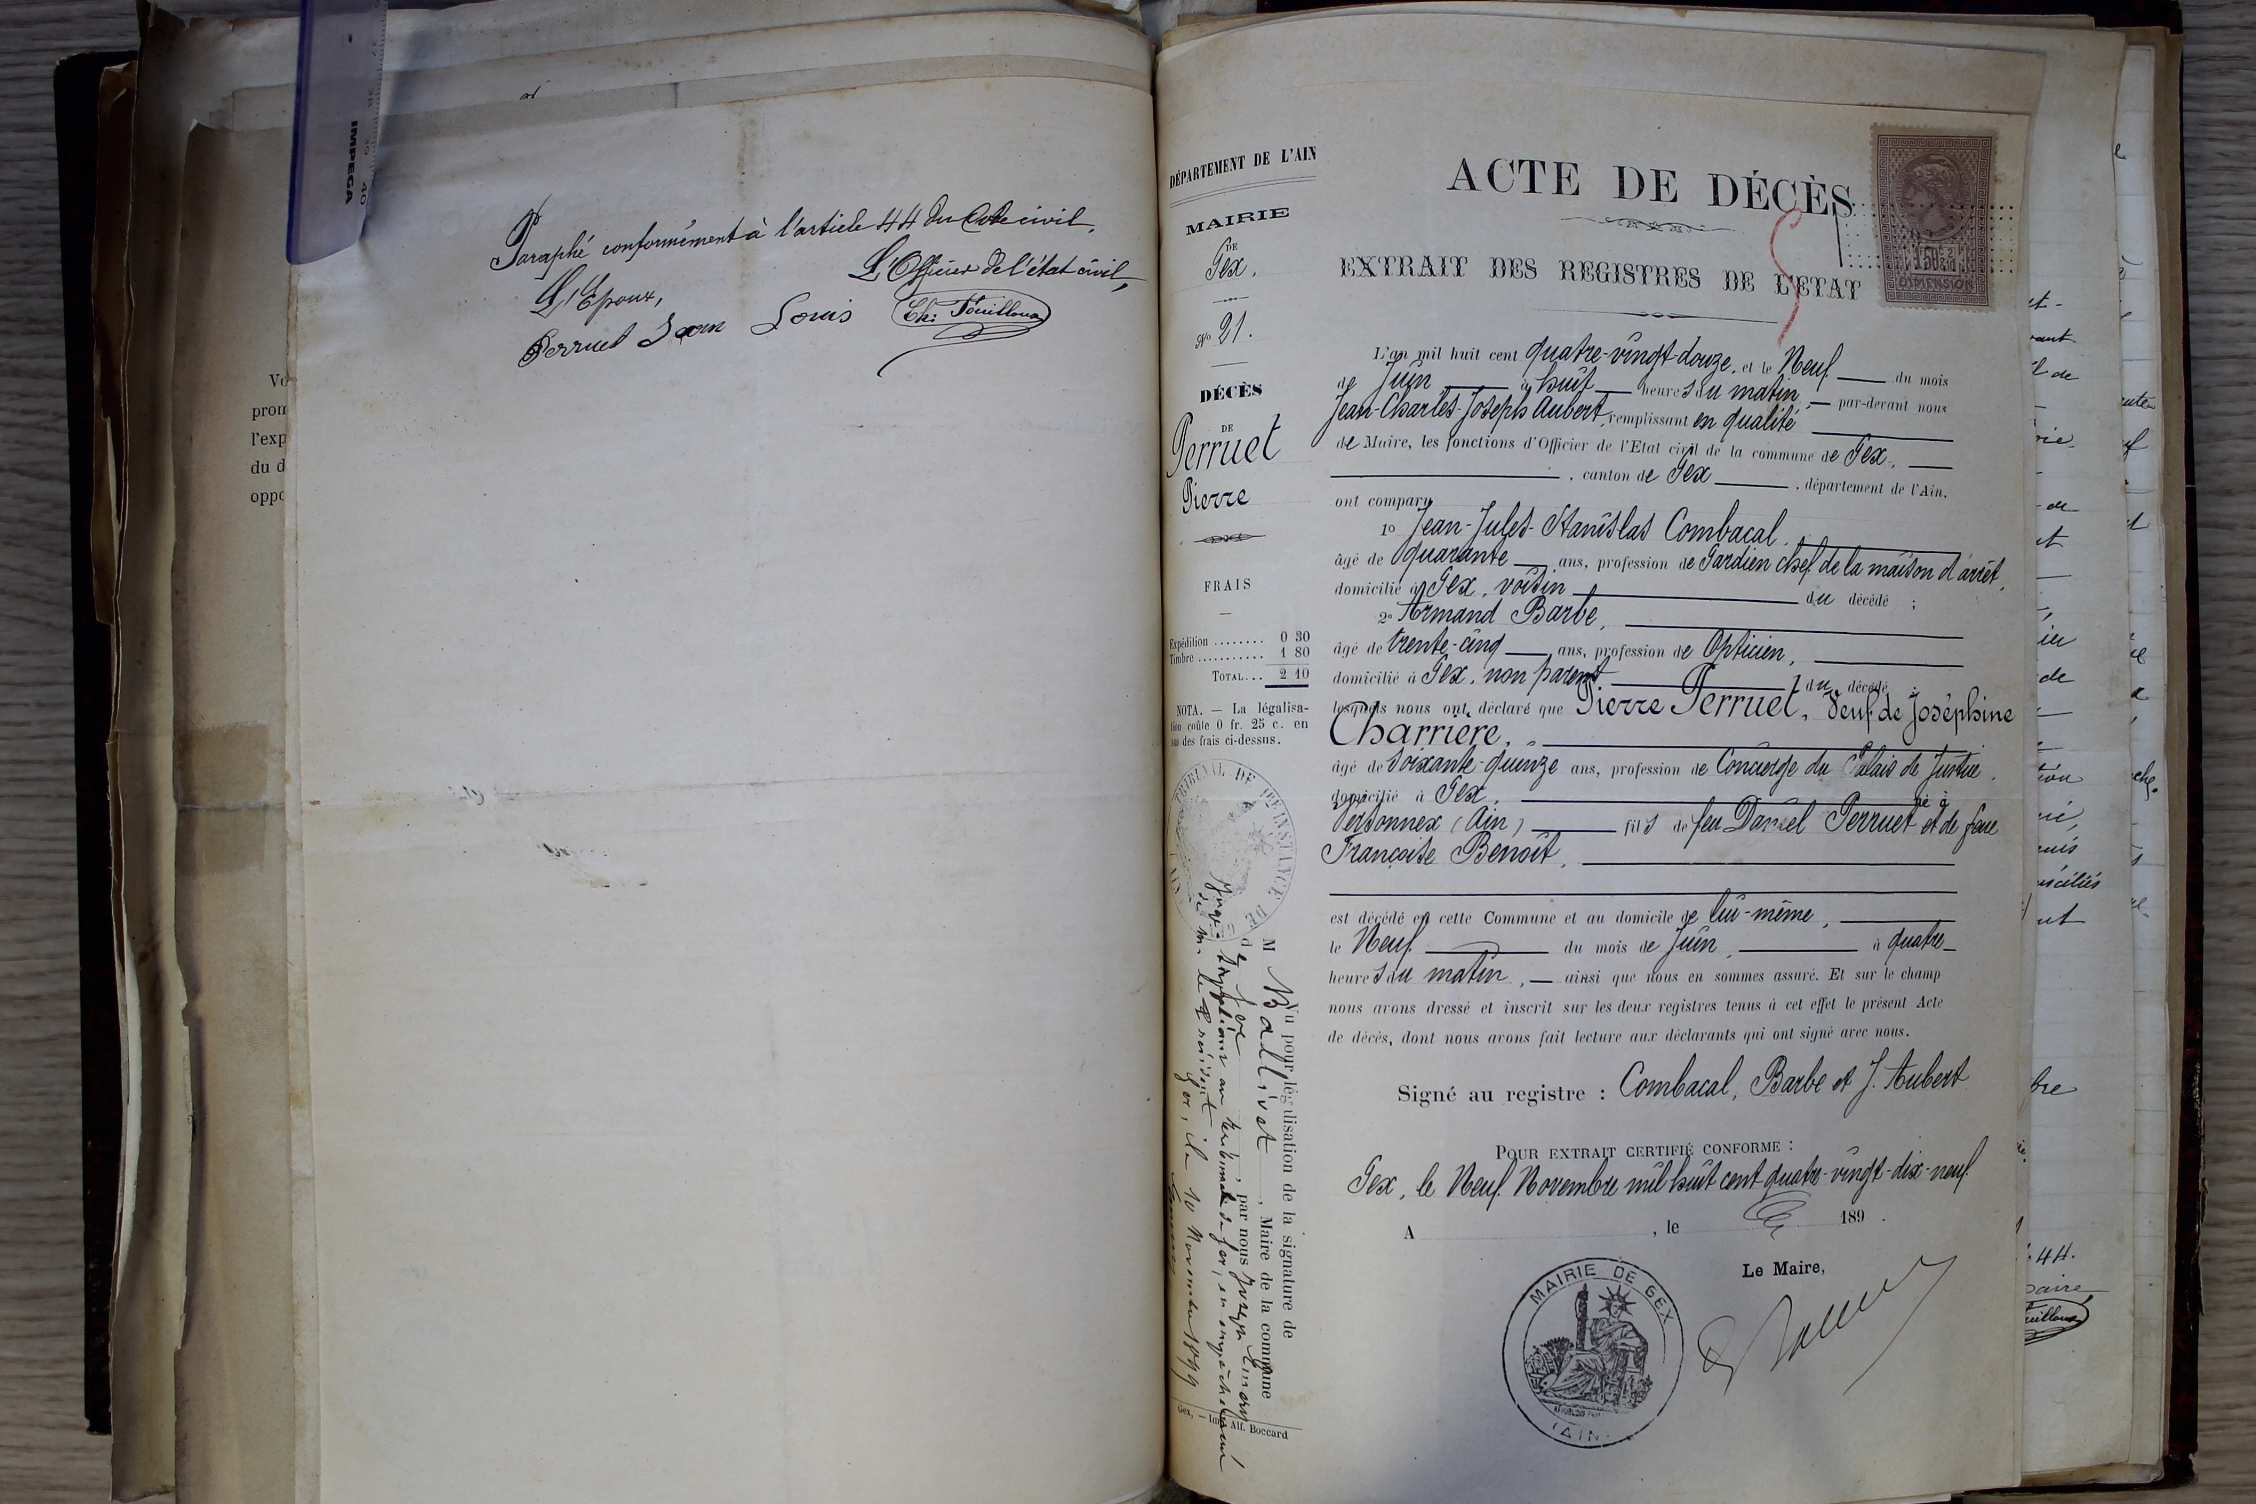 IMPEGA
Vo
pron
l'exp
du d
oppo
Paraphé conformément à l'article 44 du Code civil,
L'Officier de l'état civil,
L'Epoux,
Perruet Jean Louis
Ch: Fouilloux
DÉPARTEMENT DE L'AIN
MAIRIE
DE
Gex.
No 21.
DÉCÈS
DE
Perruet
Pierre
FRAIS
Expédition ........ 0 30
Timbre ........... 1 80
TOTAL... 2 10
NOTA. — La légalisa-
tion coûte 0 fr. 25 c. en
sus des frais ci-dessus.
TRIBUNAL DE 1re INSTANCE DE
Vu pour légalisation de la signature de
M Ballivet, Maire de la commune
de Gex, par nous Joseph
Juge suppléant au tribunal de Gex, en empêchement
de M. le Président.
Gex, le 10 Novembre 1899
Gex, — Imp. Alf. Boccard
ACTE DE DÉCÈS
EXTRAIT DES REGISTRES DE L'ETAT
DIMENSION
L'an mil huit cent quatre-vingt-douze, et le Neuf du mois
de Juin à huit heures du matin, par-devant nous
Jean-Charles-Joseph Aubert, remplissant en qualité
de Maire, les fonctions d'Officier de l'Etat civil de la commune de Gex,
, canton de Gex, département de l'Ain,
ont comparu
1o Jean-Jules-Stanislas Combacal,
âgé de quarante ans, profession de Gardien chef de la maison d'arrêt,
domicilié à Gex, voisin du décédé ;
2o Armand Barbe,
âgé de trente-cinq ans, profession de Opticien,
domicilié à Gex, non parent du décédé ;
lesquels nous ont déclaré que Pierre Perruet, Veuf de Joséphine
Charrière,
âgé de soixante-quinze ans, profession de Concierge du Palais de Justice,
domicilié à Gex, né à
Versonnex (Ain) fils de feu Daniel Perruet et de feue
Françoise Benoît,
est décédé en cette Commune et au domicile de lui-même,
le Neuf du mois de Juin, à quatre
heures du matin, ainsi que nous en sommes assuré. Et sur le champ
nous avons dressé et inscrit sur les deux registres tenus à cet effet le présent Acte
de décès, dont nous avons fait lecture aux déclarants qui ont signé avec nous.
Signé au registre : Combacal, Barbe et J. Aubert
POUR EXTRAIT CERTIFIÉ CONFORME :
Gex, le Neuf Novembre mil huit cent quatre-vingt-dix-neuf
A , le 189 .
Le Maire,
MAIRIE DE GEX
(AIN)